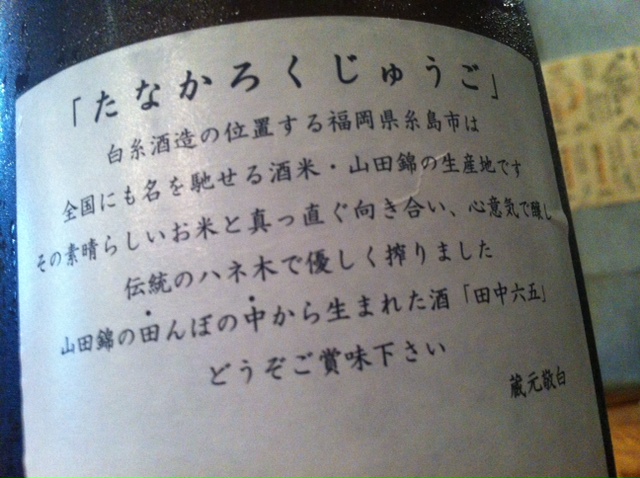 「たなかろくじゅうご」
白糸酒造の位置する福岡県糸島市は
全国にも名を馳せる酒米・山田錦の生産地です
その素晴らしいお米と真っ直ぐ向き合い、心意気で醸し
伝統のハネ木で優しく搾りました
山田錦の田んぼの中から生まれた酒「田中六五」
どうぞご賞味下さい
蔵元敬白